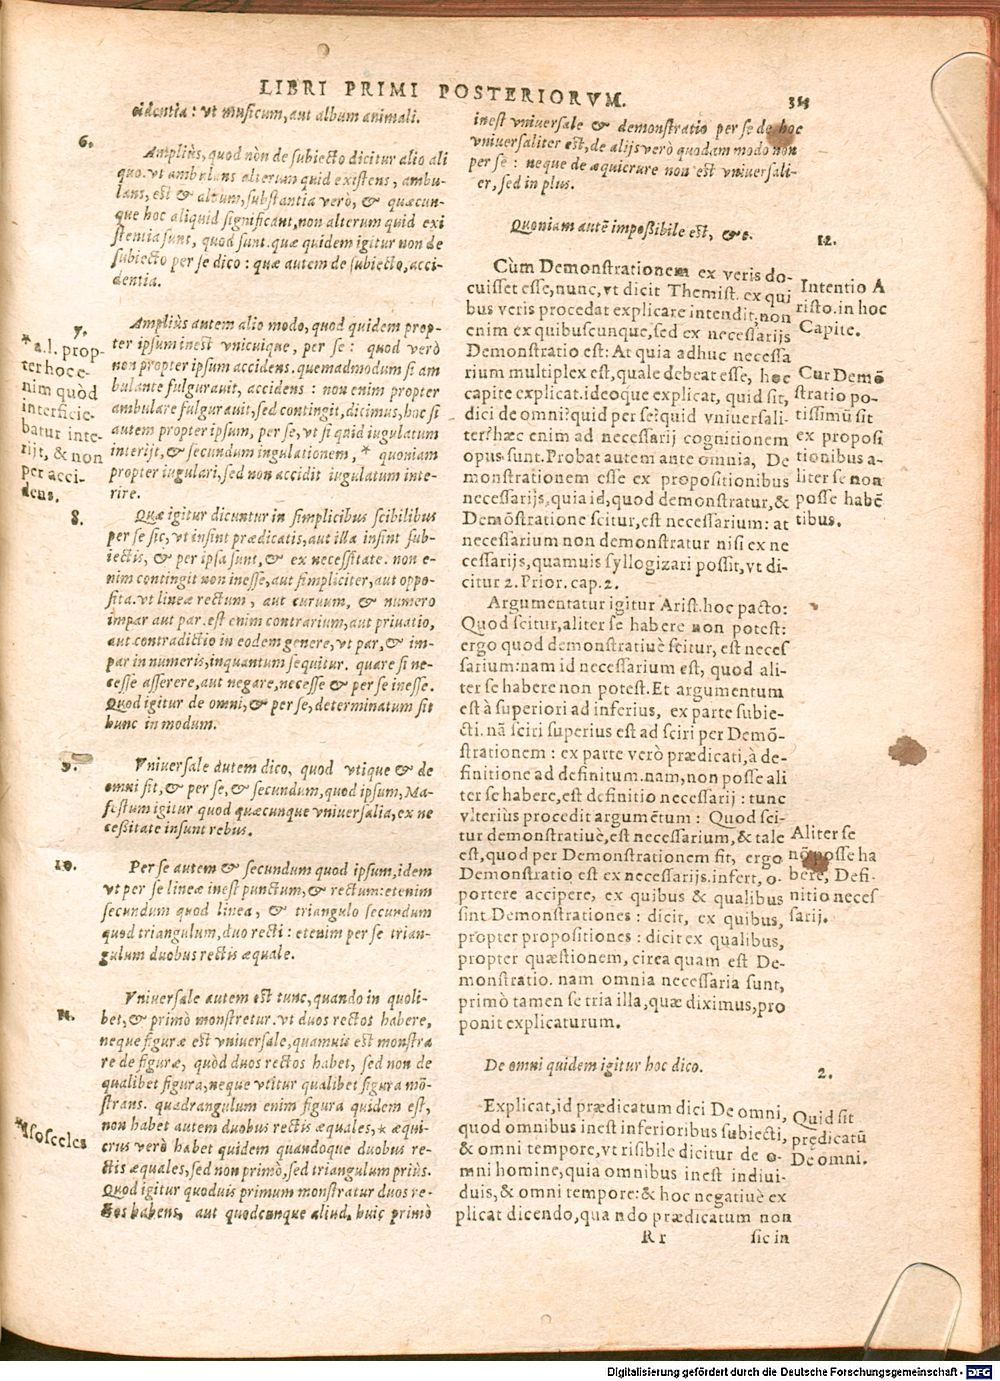 LIBRI PRIMI POSTERIORVM.
cidentia: vt musicum, aut album animali.
6.
Ampliùs, quod nòn de subiecto dicitur alio ali
quo. vt ambulans alterum quid existens, ambu-
lans, est & album, substantia verò, & quæcun-
que hoc aliquid significant, non alterum quid exi
stentia sunt, quod sunt. quæ quidem igitur non de
subiecto per se dico: quæ autem de subiecto, acci-
dentia.
7.
Ampliùs autem alio modo, quod quidem prop-
ter ipsum inest vnicuique, per se: quod verò
non propter ipsum accidens. quemadmodum si am
bulante fulgurauit, accidens: non enim propter
ambulare fulgurauit, sed contingit, dicimus, hoc si
autem propter ipsum, per se, vt si quid iugulatum
interijt, & secundum iugulationem, * quoniam
propter iugulari, sed non accidit iugulatum inte-
rire.
* a.l. prop-
ter hoc e-
nim quòd
interficie-
batur inte-
rijt, & non
per acci-
dens.
8.
Quæ igitur dicuntur in simplicibus scibilibus
per se sic, vt insint prædicatis, aut illa insint sub-
iectis, & per ipsa sunt, & ex necessitate. non e-
nim contingit non inesse, aut simpliciter, aut oppo-
sita. vt lineæ rectum, aut curuum, & numero
impar aut par. est enim contrarium, aut priuatio,
aut contradictio in eodem genere, vt par, & im-
par in numeris, inquantum sequitur. quare si ne-
cesse asserere, aut negare, necesse & per se inesse.
Quod igitur de omni, & per se, determinatum sit
hunc in modum.
9.
Vniuersale autem dico, quod vtique & de
omni sit, & per se, & secundum, quod ipsum, Ma-
festum igitur quod quæcunque vniuersalia, ex ne
ceßitate insunt rebus.
10.
Per se autem & secundum quod ipsum, idem
vt per se lineæ inest punctum, & rectum: etenim
secundum quod linea, & triangulo secundum
quod triangulum, duo recti: etenim per se trian-
gulum duobus rectis æquale.
11.
Vniuersale autem est tunc, quando in quoli-
bet, & primò monstretur. vt duos rectos habere,
neque figuræ est vniuersale, quamuis est monstra
re de figura, quòd duos rectos habet, sed non de
qualibet figura, neque vtitur qualibet figura mõ-
strans. quadrangulum enim figura quidem est,
non habet autem duobus rectis æquales, * æqui-
crus verò habet quidem quandoque duobus re-
ctis æquales, sed non primò, sed triangulum priùs.
Quod igitur quoduis primum monstratur duos re-
ctos habens, aut quodcunque aliud, huic primò
*Isosceles
inest vniuersale & demonstratio per se de hoc
vniuersaliter est, de alijs verò quodam modo non
per se: neque de æquicrure non est vniuersali-
er, sed in plus.
Quoniam autẽ impoßibile est, &c.
12.
Cùm Demonstrationem ex veris do-
cuisset esse, nunc, vt dicit Themist. ex qui
bus veris procedat explicare intendit, non
enim ex quibuscunque, sed ex necessarijs
Demonstratio est: At quia adhuc necessa
rium multiplex est, quale debeat esse, hoc
capite explicat. ideoque explicat, quid sit,
dici de omni? quid per se? quid vniuersali-
ter? hæc enim ad necessarij cognitionem
opus sunt. Probat autem ante omnia, De
monstrationem esse ex propositionibus
necessarijs, quia id, quod demonstratur, &
Demõstratione scitur, est necessarium: at
necessarium non demonstratur nisi ex ne
cessarijs, quamuis syllogizari possit, vt di-
citur 2. Prior. cap. 2.
Intentio A
risto. in hoc
Capite.
Cur Demõ
stratio po-
tissimũ sit
ex proposi
tionibus a-
liter se non
posse habẽ
tibus.
Argumentatur igitur Arist. hoc pacto:
Quod scitur, aliter se habere non potest:
ergo quod demonstratiuè scitur, est neces
sarium: nam id necessarium est, quod ali-
ter se habere non potest. Et argumentum
est à superiori ad inferius, ex parte subie-
cti. nã sciri superius est ad sciri per Demõ-
strationem: ex parte verò prædicati, à de-
finitione ad definitum. nam, non posse ali
ter se habere, est definitio necessarij: tunc
vlterius procedit argumẽtum: Quod sci-
tur demonstratiuè, est necessarium, & tale
est, quod per Demonstrationem sit, ergo
Demonstratio est ex necessarijs. infert, o-
portere accipere, ex quibus & qualibus
sint Demonstrationes: dicit, ex quibus,
propter propositiones: dicit ex qualibus,
propter quæstionem, circa quam est De-
monstratio. nam omnia necessaria sunt,
primò tamen se tria illa, quæ diximus, pro
ponit explicaturum.
Aliter se
nõ posse ha
bere, Defi-
nitio neces
sarij.
De omni quidem igitur hoc dico.
2.
Explicat, id prædicatum dici De omni,
quod omnibus inest inferioribus subiecti,
& omni tempore, vt risibile dicitur de o-
mni homine, quia omnibus inest indiui-
duis, & omni tempore: & hoc negatiuè ex
plicat dicendo, quando prædicatum non
Quid sit
prædicatũ
De omni.
R r
sic in
Digitalisierung gefördert durch die Deutsche Forschungsgemeinschaft - DFG